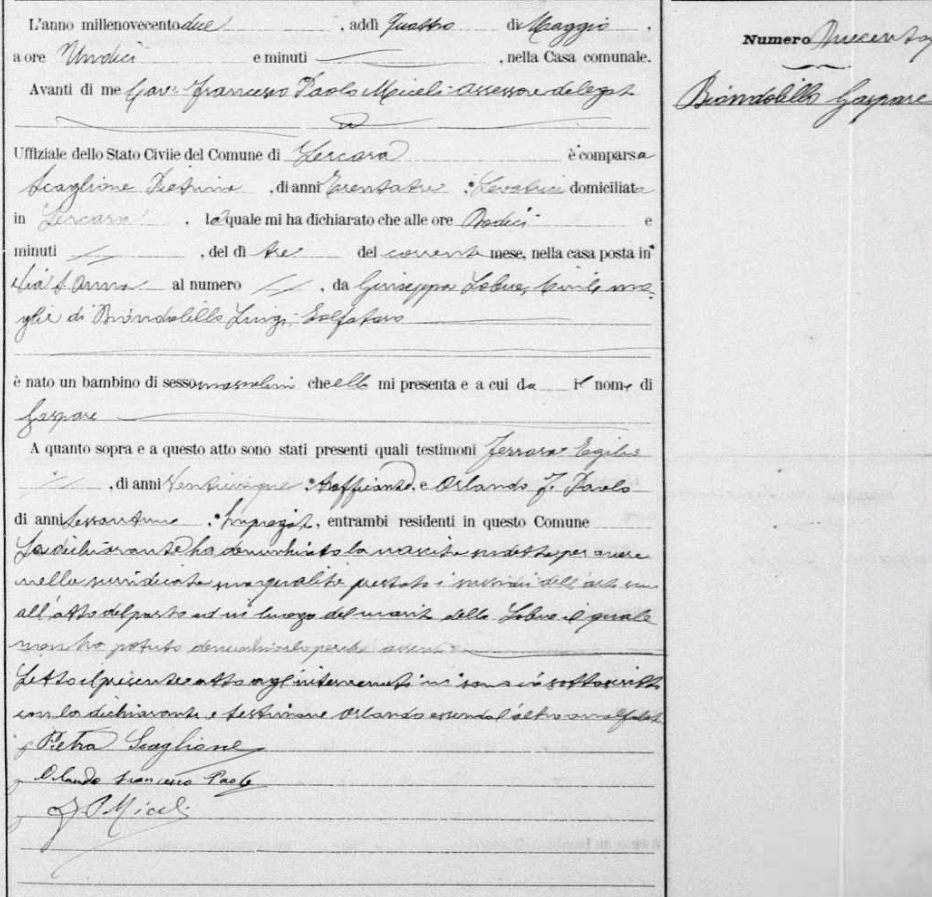 L'anno millenovecento due , addì quattro di Maggio ,
a ore Undici e minuti , nella Casa comunale.
Avanti di me Cav. Francesco Paolo Miceli assessore delegato
Uffiziale dello Stato Civile del Comune di Lercara è comparsa
Scaglione Pietrina , di anni trentatre , Levatrice domiciliata
in Lercara , la quale mi ha dichiarato che alle ore e
minuti , del dì tre del corrente mese, nella casa posta in
Via S. Anna al numero , da Giuseppa Lobue, Civile mo-
glie di Biondolillo Luigi, Solfataro
è nato un bambino di sesso mascolino che ella mi presenta e a cui da il nome di
Gaspare
A quanto sopra e a questo atto sono stati presenti quali testimoni Ferrara Egilio
, di anni Venticinque , trafficante, e Orlando F. Paolo
di anni sessantuno , Impiegato, entrambi residenti in questo Comune
La dichiarante ha denunciato la nascita suddetta per avere
nella qualità prestato i dell'arte sua
all'atto del parto ed in luogo del marito della Lobue il quale
non ha potuto denunciarla perché assente
Letto il presente atto agl'intervenuti sottoscritto
con la dichiarante e testimone Orlando essendo l'altro analfabeta
Pietra Scaglione
Orlando Francesco Paolo
F P Miceli
Numero Duecento
Biondolillo Gaspare